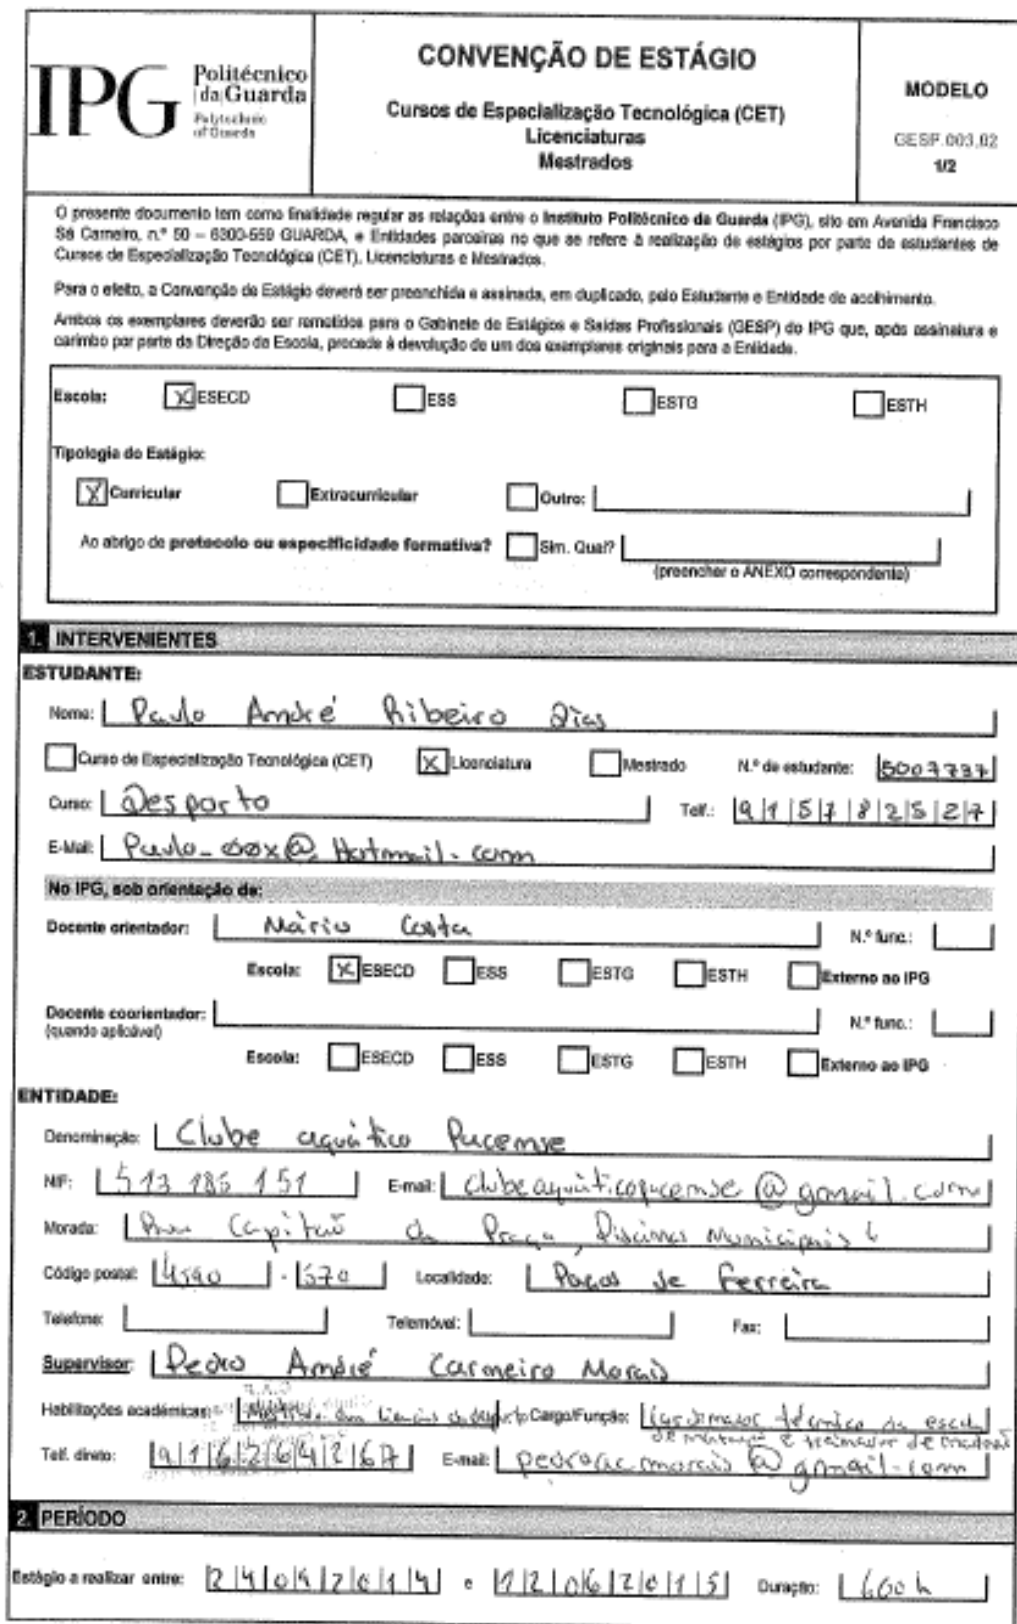 IPG Politécnico
|da|Guarda
Polytechnic
of Guarda
CONVENÇÃO DE ESTÁGIO
Cursos de Especialização Tecnológica (CET)
Licenciaturas
Mestrados
MODELO
GESP.003.02
1/2
O presente documento tem como finalidade regular as relações entre o Instituto Politécnico da Guarda (IPG), sito em Avenida Francisco
Sá Carneiro, n.º 50 – 6300-559 GUARDA, e Entidades parceiras no que se refere à realização de estágios por parte de estudantes de
Cursos de Especialização Tecnológica (CET), Licenciaturas e Mestrados.
Para o efeito, a Convenção de Estágio deverá ser preenchida e assinada, em duplicado, pelo Estudante e Entidade de acolhimento.
Ambos os exemplares deverão ser remetidos para o Gabinete de Estágios e Saídas Profissionais (GESP) do IPG que, após assinatura e
carimbo por parte da Direção da Escola, procede à devolução de um dos exemplares originais para a Entidade.
Escola: X ESECD ESS ESTG ESTH
Tipologia do Estágio:
X Curricular Extracurricular Outro:
Ao abrigo de protocolo ou especificidade formativa? Sim. Qual?
(preencher o ANEXO correspondente)
1. INTERVENIENTES
ESTUDANTE:
Nome: Paulo André Ribeiro Dias
Curso de Especialização Tecnológica (CET) X Licenciatura Mestrado N.º de estudante: 5007737
Curso: Desporto Telf.: 915782527
E-Mail: @ Hotmail.com
No IPG, sob orientação de:
Docente orientador: Mário Costa N.º func.:
Escola: X ESECD ESS ESTG ESTH Externo ao IPG
Docente coorientador: N.º func.:
(quando aplicável)
Escola: ESECD ESS ESTG ESTH Externo ao IPG
ENTIDADE:
Denominação: Clube aquático Pacense
NIF: 513 185 151 E-mail: clubeaquaticopacense@gmail.com
Morada: Rua Capitão da Praça, Piscinas Municipais
Código postal: 4590 - 570 Localidade: Paços de Ferreira
Telefone: Telemóvel: Fax:
Supervisor: Pedro André Carneiro Morais
Habilitações académicas: Cargo/Função: Coordenador técnico da escola
de natação e treinador de
Telf. direto: 916264267 E-mail: pedroacmorais@gmail.com
2. PERÍODO
Estágio a realizar entre: 24092014 e 12062015 Duração: 600h